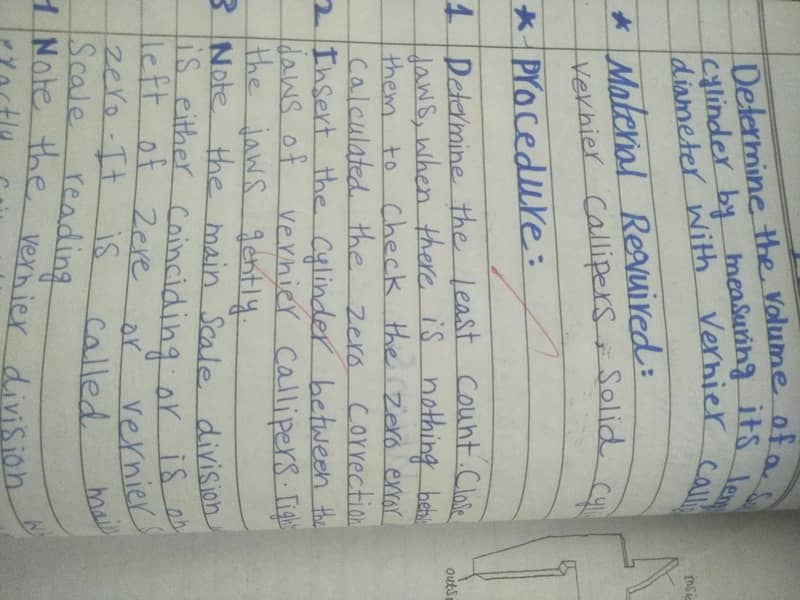 Determine the volume of a
cylinder by measuring its
diameter with vernier
* Material Required:
vernier callipers, Solid
* Procedure:
1 Determine the least count. Close
Jaws, when there is nothing
them to check the zero error
calculated the zero correction
2 Insert the cylinder between the
Jaws of vernier callipers.
the jaws gently.
3 Note the main Scale division
is either coinciding or is on
left of zere or vernier
zero. It is called
Scale reading
Note the vernier division
exactly